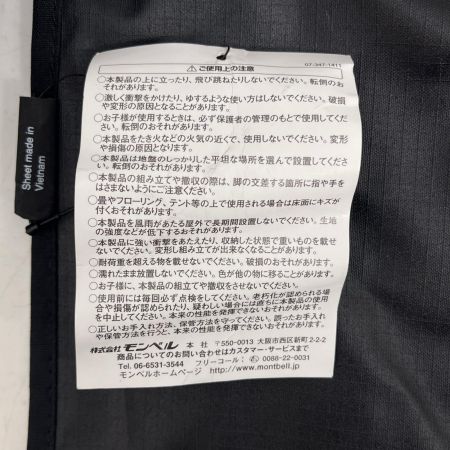 07-347-1411
⚠ご使用上の注意
○本製品の上に立ったり、飛び跳ねたりしないでください。転倒のお
それがあります。
○激しく衝撃をかけたり、ゆするような使い方はしないでください。破損
や変形の原因となることがあります。
○お子様が使用するときは、必ず保護者の管理のもとで使用してくだ
さい。転倒のおそれがあります。
○本製品をたき火などの火気の近くで、使用しないでください。変形
や損傷の原因になります。
○本製品は地盤のしっかりした平坦な場所を選んで設置してくださ
い。転倒のおそれがあります。
○本製品の組み立てや撤収の際は、脚の交差する箇所に指や手を
はさまないようにご注意ください。
○畳やフローリング、テント等の上で使用される場合は床面にキズが
付くおそれがあります。
○本製品を風雨があたる屋外で長期間設置しないでください。生地
の強度などが低下するおそれがあります。
○本製品に強い衝撃をあたえたり、収納した状態で重いものを載せ
ないでください。変形し組み立てが出来なくなることがあります。
○耐荷重を超える物を載せないでください。破損のおそれがあります。
○濡れたまま放置しないでください。色が他の物に移ることがあります。
○お子様に、本製品の組立てや撤収をさせないでください。
○使用前には毎回必ず点検をしてください。老朽化が認められる場
合や損傷が認められたり、疑わしい場合には直ちに本製品の使用
を中止してください。本来の性能を発揮できないおそれがあります。
○正しいお手入れ方法、保管方法を守ってください。誤ったお手入れ
や保管方法を行うと、本来の性能を発揮できないおそれがあります。
株式会社モンベル 本 社 〒550-0013 大阪市西区新町2-2-2
商品についてのお問い合わせはカスタマー・サービスまで
Tel. 06-6531-3544 フリーコール: 0088-22-0031
モンベルホームページ http://www.montbell.jp
Sheet made in
Vietnam